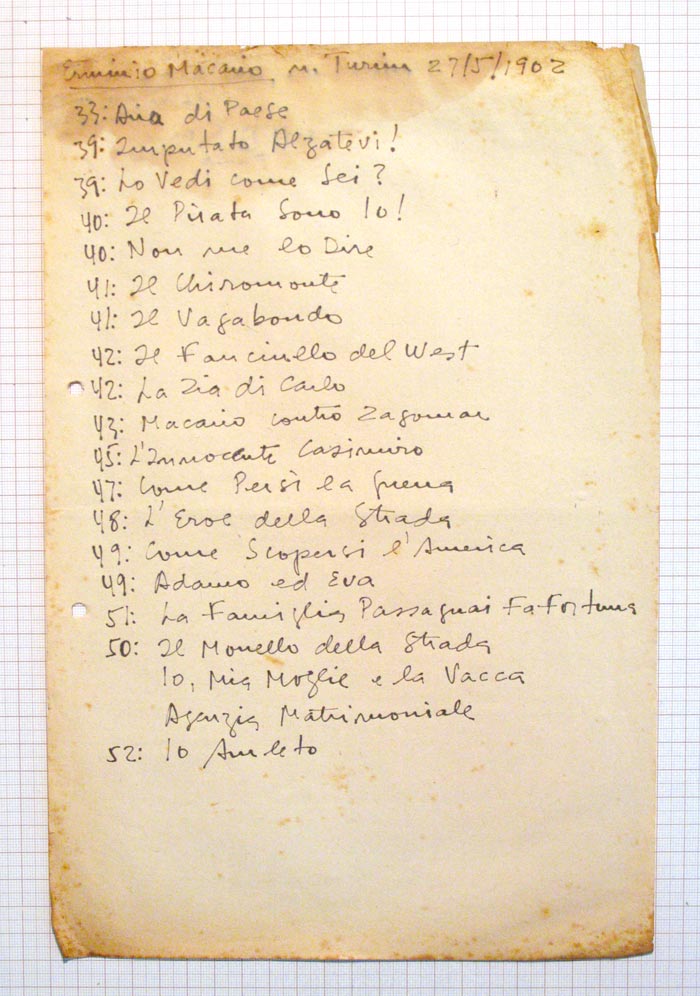 Erminio Macario n. Turin 27/5/1902
33: Aria di Paese
39: Imputato Alzatevi!
39: Lo Vedi come Sei?
40: Il Pirata Sono Io!
40: Non me lo Dire
41: Il Chiromonte
41: Il Vagabondo
42: Il Fanciullo del West
42: La Zia di Carlo
43: Macario contro Zagomar
45: L'Innocente Casimiro
47: Come Persi la Guerra
48: L'Eroe della Strada
49: Come Scopersi l'America
49: Adamo ed Eva
51: La Famiglia Passaguai Fa Fortuna
50: Il Monello della Strada
Io, Mia Moglie e la Vacca
Agenzia Matrimoniale
52: Io Amleto